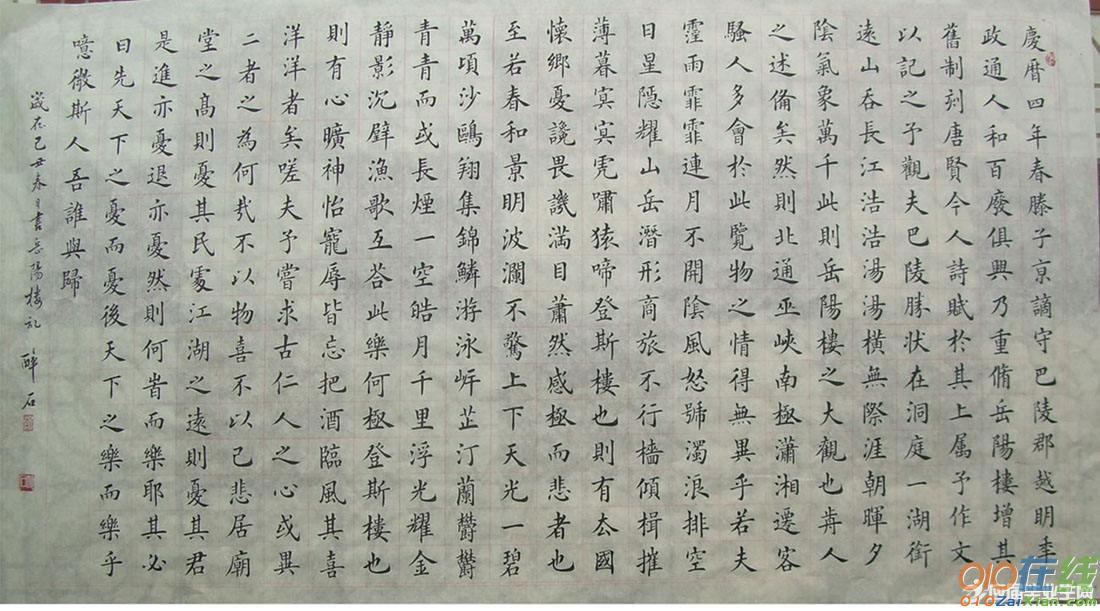 慶曆四年春滕子京謫守巴陵郡越明秊
政通人和百廢俱興乃重脩岳陽樓增其
舊制刻唐賢今人詩賦於其上属予作文
以記之予觀夫巴陵勝状在洞庭一湖銜
遠山吞長江浩浩湯湯橫無際涯朝暉夕
陰氣象萬千此則岳陽樓之大觀也歬人
之述備矣然則北通巫峽南極瀟湘遷客
騷人多會於此覽物之情得無異乎若夫
霪雨霏霏連月不開陰風怒號濁浪排空
日星隱耀山岳潛形商旅不行檣傾楫摧
薄暮冥冥虎嘯猿啼登斯樓也則有去國
懷鄉憂讒畏譏滿目蕭然感極而悲者也
至若春和景明波瀾不驚上下天光一碧
萬頃沙鷗翔集錦鱗游泳岸芷汀蘭鬱鬱
青青而或長煙一空皓月千里浮光耀金
靜影沉璧漁歌互荅此樂何極登斯樓也
則有心曠神怡寵辱皆忘把酒臨風其喜
洋洋者矣嗟夫予嘗求古仁人之心或異
二者之為何哉不以物喜不以己悲居廟
堂之高則憂其民處江湖之遠則憂其君
是進亦憂退亦憂然則何旹而樂耶其必
曰先天下之憂而憂後天下之樂而樂乎
噫微斯人吾誰與歸
歲在己丑春月書岳陽樓記 醉石
010在线
010ZaiXian.com